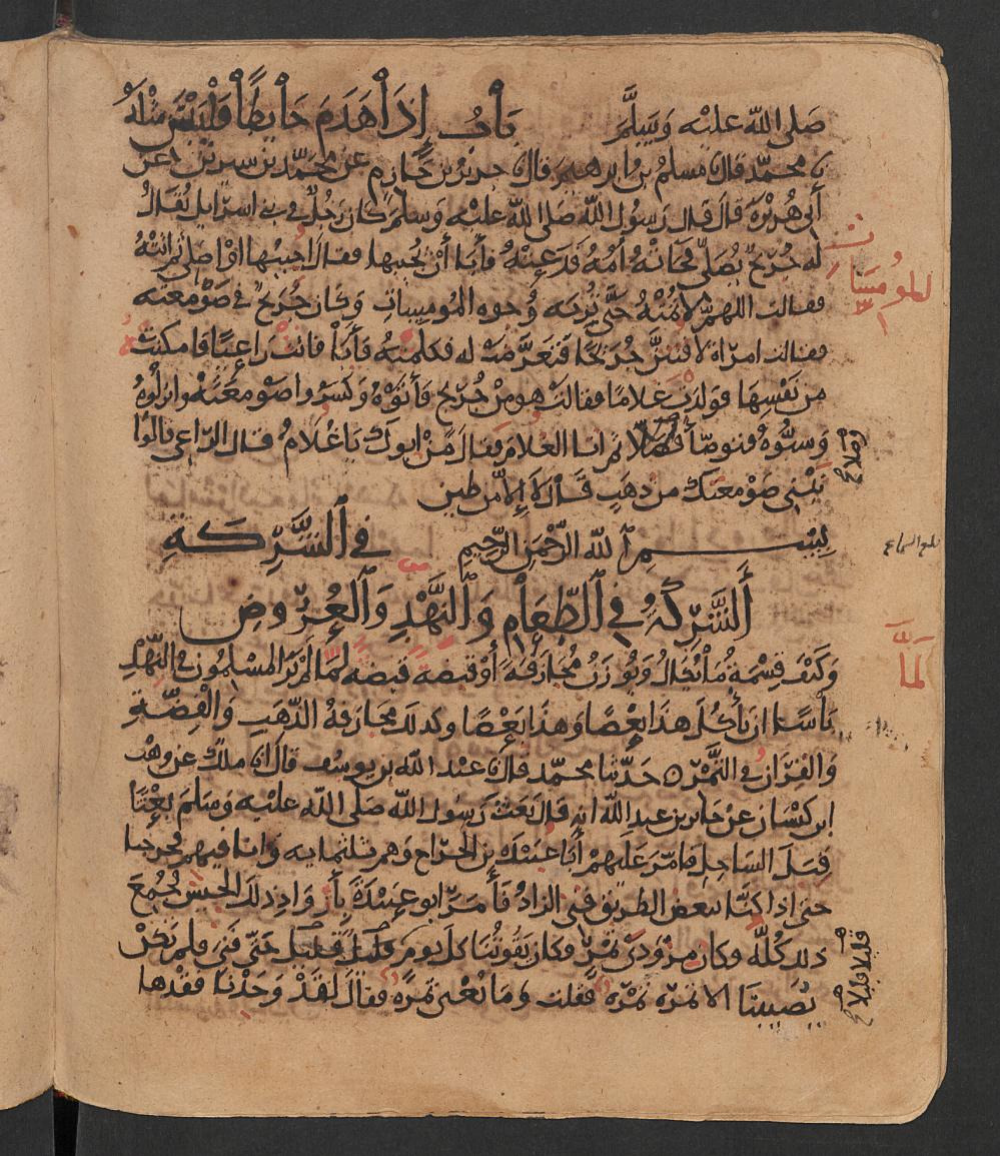 صَلى الله عليْه وَسَلَّمَ بَابُ إِذَا هَدَمَ حَايِطًا فَلْيَبْنِ مثْلَهُ
محمّد قال نا مسلم بن ابرهيم قال نا جرير بن حَازِم عن محمّد بن سيرين عن
أبي هُرَيْرَة قالَ قَال رَسولُ الله صَلى الله عليْه وَسلم كَان رَجُلٌ في بني اسرايل يُقَالُ
له جُرَيجٌ يُصَلّي فَجَاءَتْهُ أمّهُ فَدَعتْهُ فأبَا أنْ يُجيبها فقال اُجيبُها اوْ اصَلي ثم اتتْهُ
فقالت اللهمّ لا تمتْهُ حَتّى تُريَه وُجوه المُوميسات وَكان جُرَيج في صَوْمعته
فقالت امرَاة لافتننَّ جُرَيجًا فتَعرَّضت له فكلمتْهُ فأبَا فاتت رَاعيًا فامكنتْهُ
من نَفْسِهَا فوَلدت غلامًا فقالتْ هو من جُرَيج فأتوْهُ وَكسرُوا صَوْمعَتَهُ وانزلُوهُ
وَسبُّوهُ فتوضّأ فصلا ثم اتا الغلامَ فقال مَنْ ابوك يَا غُلامُ قال الرّاعي قالوا
نَبْني صَوْمعتك من ذهَبٍ قَالَ لا إلاّ من طين
بِسْمِ اللهِ الرَّحْمَنِ الرَّحِيمِ في الشَّرِكَةِ
أَلشَّرِكَةُ في الطَّعَامِ وَالنَّهْدِ وَالعُرُوضِ
وَكيْفَ قِسْمَةُ مَا يُكالُ وَيُوزَنُ مُجَازَفةً أوْ قبضة قبضة لمّا لمْ يرَ المُسْلِمُون في النّهْدِ
بَأسًا ان يَأكُلَ هذا بَعْضًا وَهذا بَعْضًا وكذلك مجَازفةُ الذّهَبِ وَالْفِضَّةِ
وَالقِرَان في التَّمْرِ حَدّثنا محمّد قال نا عبْد الله بن يوسُف قال انا ملك عن وهْب
ابن كيْسَان عن جَابر بن عبد الله انه قال بَعَثَ رَسُولُ الله صَلى الله عليْه وَسَلمَ بعْثًا
قِبَلَ السَاحِل فامّرَ عَلَيهمْ أبَا عبَيْدَة بن الجرّاح وَهم ثلثماية وَانا فيهم فخرجنا
حتى اذا كنّا ببعض الطريق فني الزادُ فأمَرَ ابو عبَيْدَة بِأزْوَادِ ذلك الجيْش فجُمعَ
ذلك كُلّه وكان مِزْوَدَيْ تمْر وكان يَقُوتُنَا كلَّ يوم قليل قليل حَتّى فنيَ فلم تكنْ
تصيبنا الا تمرَة تمْرَة فقلت وَمَا تُغْني تمرَة فقال لقدْ وَجَدْنا فقْدها
للمُومِسَات
وصلا
لَمَّا
قليلا قليلا